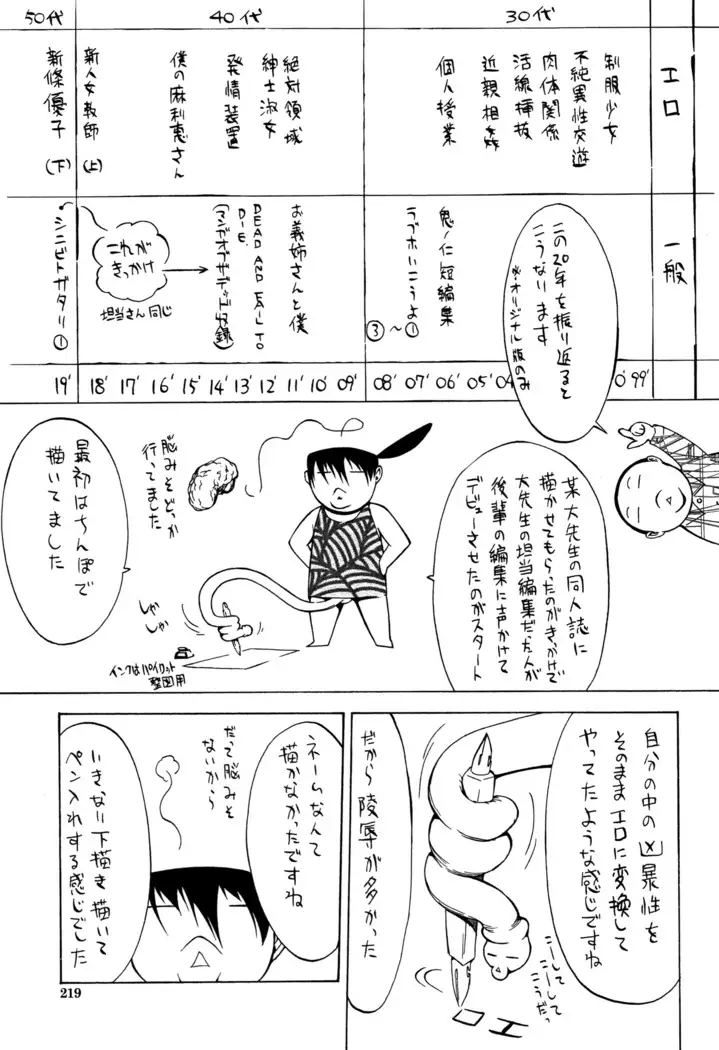 30代
40代
50代
エロ
制服少女
不純異性交遊
肉体関係
活線挿抜
近親相姦
個人授業
絶対領域
紳士淑女
発情装置
僕の麻利恵さん
新人女教師(上)
新條優子(下)
一般
鬼ノ仁短編集
ラブホいこうよ①〜③
お義姉さんと僕
DEAD AND FAIL TO
DIE.
(マンガオブザデッド収録)
これが
きっかけ
担当さん同じ
シニビトガタリ①
99'
04
05'
06'
07'
08'
09'
10'
11'
12'
13'
14'
15'
16'
17'
18'
19'
この20年を振り返ると
こうなります
※オリジナル版のみ
某大先生の同人誌に
描かせてもらったのがきっかけで
大先生の担当編集だった人が
後輩の編集に声かけて
デビューさせたのがスタート
脳みそどっか
行ってました
しゃ
しゃ
インクはパイロット
製図用
最初はちんぽで
描いてました
自分の中の凶暴性を
そのままエロに変換して
やってたような感じですね
だから陵辱が多かった
こーして
こーして
こうだっ
エロ
ネームなんて
描かなかったですね
だって脳みそ
ないから
いきなり下描き描いて
ペン入れする感じでした
219